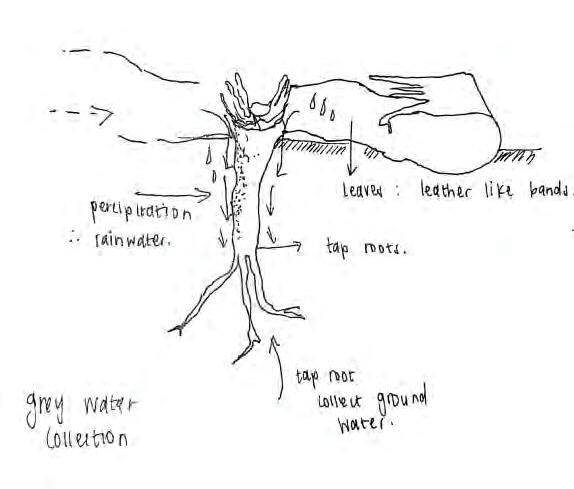 leaves : leather like bands.
percipitation
∴ rainwater.
tap roots.
tap root
collect ground
water.
grey water
collection